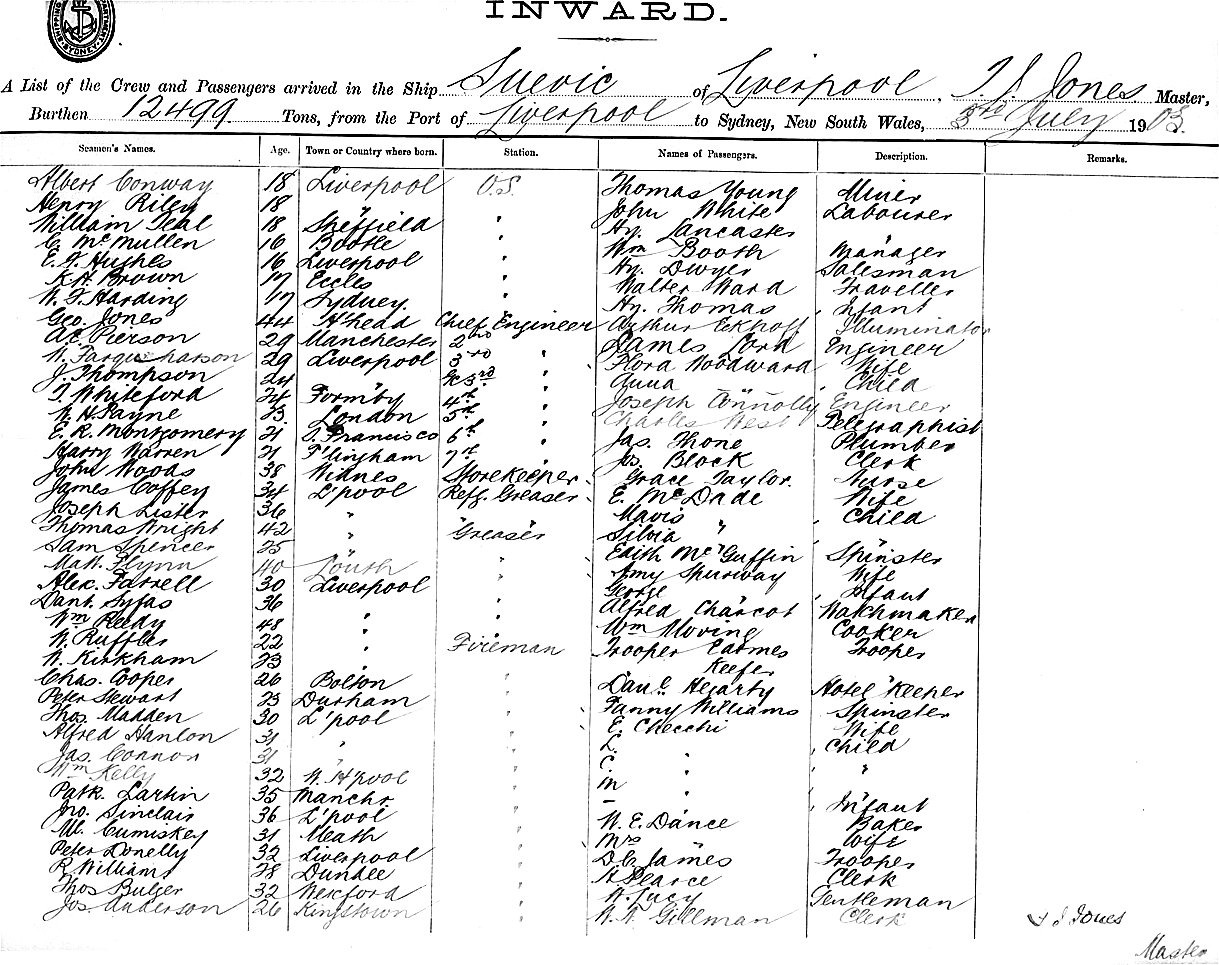 SYDNEY
INWARD.
A List of the Crew and Passengers arrived in the Ship Suevic of Liverpool, T. J. Jones Master,
Burthen 12499 Tons, from the Port of Liverpool to Sydney, New South Wales, 3rd July 1903.
Seamen's Names. Age. Town or Country where born. Station. Names of Passengers. Description. Remarks.
Albert Conway 18 Liverpool O.S. Thomas Young Miner
Henry Riley 18 " " John White Labourer
William Teal 18 Sheffield " Hy. Lancaster "
C. McMullen 16 Bootle " Wm Booth Manager
E. F. Hughes 16 Liverpool " Hy. Dwyer Salesman
K. H. Brown 17 Eccles " Walter Ward Traveller
W. F. Harding 17 Sydney " Hy. Thomas Infant
Geo. Jones 44 A'head Chief Engineer Arthur Eckhoff Illuminator
A. E. Pierson 29 Manchester 2nd " James Lord Engineer
W. Farquharson 29 Liverpool 3rd " Flora Woodward Wife
J. Thompson 24 " 3rd " Anna " Child
T. Whiteford 24 Formby 4th " Joseph Connolly Engineer
W. H. Payne 23 London 5th " Charles West Telegraphist
E. R. Montgomery 21 S. Francisco 6th " Jas. Thone Plumber
Harry Warren 21 7th " Js. Block Clerk
John Woods 38 Widnes Storekeeper Grace Taylor Nurse
James Coffey 34 L'pool Refg. Greaser E. McDade Wife
Joseph Lister 36 " " Mavis " Child
Thomas Wright 42 " Greaser Silvia " "
Sam Spencer 25 " " Edith McGuffin Spinster
Matt. Flynn 40 Louth " Amy Spurway Wife
Alex. Farrell 30 Liverpool " George " Infant
Danl. Syfas 36 " " Alfred Charcot Watchmaker
Wm Reedy 48 " " Wm Moving Cooker
W. Ruffler 22 " Fireman Trooper Eadmes Trooper
W. Kirkham 23 " " Keefer
Chas. Cooper 26 Bolton " Danl. Hegarty Hotel Keeper
Peter Stewart 23 Durham " Fanny Williams Spinster
Thos. Madden 30 L'pool " E. Checchi Wife
Alfred Hanlon 31 " " L. " Child
Jas. Connor 31 " " C. " "
Wm Kelly 32 W. H'pool " M " "
Patk. Larkin 35 Manchr. " - " Infant
Jno. Sinclair 36 L'pool " W. E. Dance Baker
M. Cumiskey 31 Meath " Mrs " Wife
Peter Donelly 32 Liverpool " D. C. James Trooper
R. Williams 28 Dundee " H. Pearce Clerk
Thos Bulger 32 Wexford " W. Lucy Gentleman
Jos. Anderson 26 Kingstown " W. N. Gillman Clerk
T J Jones
Master